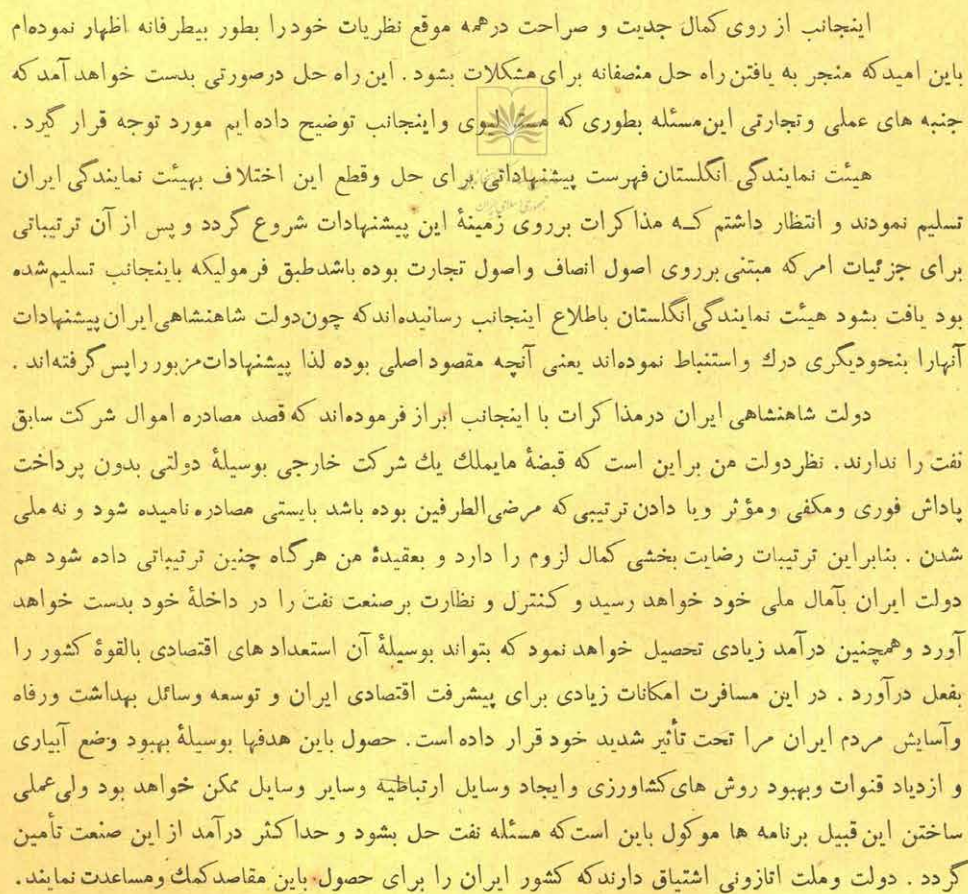 اینجانب از روی کمال جدیت و صراحت درهمه موقع نظریات خودرا بطور بیطرفانه اظهار نموده‌ام
باین امیدکه منجر به یافتن راه حل منصفانه برای مشکلات بشود . این راه حل درصورتی بدست خواهد آمد که
جنبه های عملی وتجارتی این مسئله بطوری که لیوی واینجانب توضیح داده ایم مورد توجه قرار گیرد .
هیئت نمایندگی انگلستان فهرست پیشنهاداتی برای حل وقطع این اختلاف بهیئت نمایندگی ایران
تسلیم نمودند و انتظار داشتم که مذاکرات برروی زمینهٔ این پیشنهادات شروع گردد و پس از آن ترتیباتی
برای جزئیات امرکه مبتنی برروی اصول انصاف واصول تجارت بوده باشدطبق فرمولیکه باینجانب تسلیم‌شده
بود یافت بشود هیئت نمایندگی انگلستان باطلاع اینجانب رسانیده‌اندکه چون‌دولت شاهنشاهی ایران پیشنهادات
آنهارا بنحودیگری درك واستنباط نموده‌اند یعنی آنچه مقصود اصلی بوده لذا پیشنهادات مزبور راپس گرفته‌اند .
دولت شاهنشاهی ایران درمذاکرات با اینجانب ابراز فرموده‌اند که قصد مصادره اموال شرکت سابق
نفت را ندارند . نظر دولت من براین است که قبضهٔ مایملك یك شرکت خارجی بوسیلهٔ دولتی بدون پرداخت
پاداش فوری ومکفی ومؤثر ویا دادن ترتیبی‌که مرضی‌الطرفین بوده باشد بایستی مصادره نامیده شود و نه ملی
شدن . بنابراین ترتیبات رضایت بخشی کمال لزوم را دارد و بعقیدهٔ من هرگاه چنین ترتیباتی داده شود هم
دولت ایران بآمال ملی خود خواهد رسید و کنترل و نظارت برصنعت نفت را در داخلهٔ خود بدست خواهد
آورد وهمچنین درآمد زیادی تحصیل خواهد نمود که بتواند بوسیلهٔ آن استعداد های اقتصادی بالقوهٔ کشور را
بفعل درآورد . در این مسافرت امکانات زیادی برای پیشرفت اقتصادی ایران و توسعه وسائل بهداشت ورفاه
وآسایش مردم ایران مرا تحت تأثیر شدید خود قرار داده است . حصول باین هدفها بوسیلهٔ بهبود وضع آبیاری
و ازدیاد قنوات وبهبود روش های کشاورزی وایجاد وسایل ارتباطیه وسایر وسایل ممکن خواهد بود ولی‌عملی
ساختن این قبیل برنامه ها موکول باین است‌که مسئله نفت حل بشود و حداکثر درآمد از این صنعت تأمین
گردد . دولت وملت اتازونی اشتیاق دارندکه کشور ایران را برای حصول باین مقاصدکمك ومساعدت نمایند .